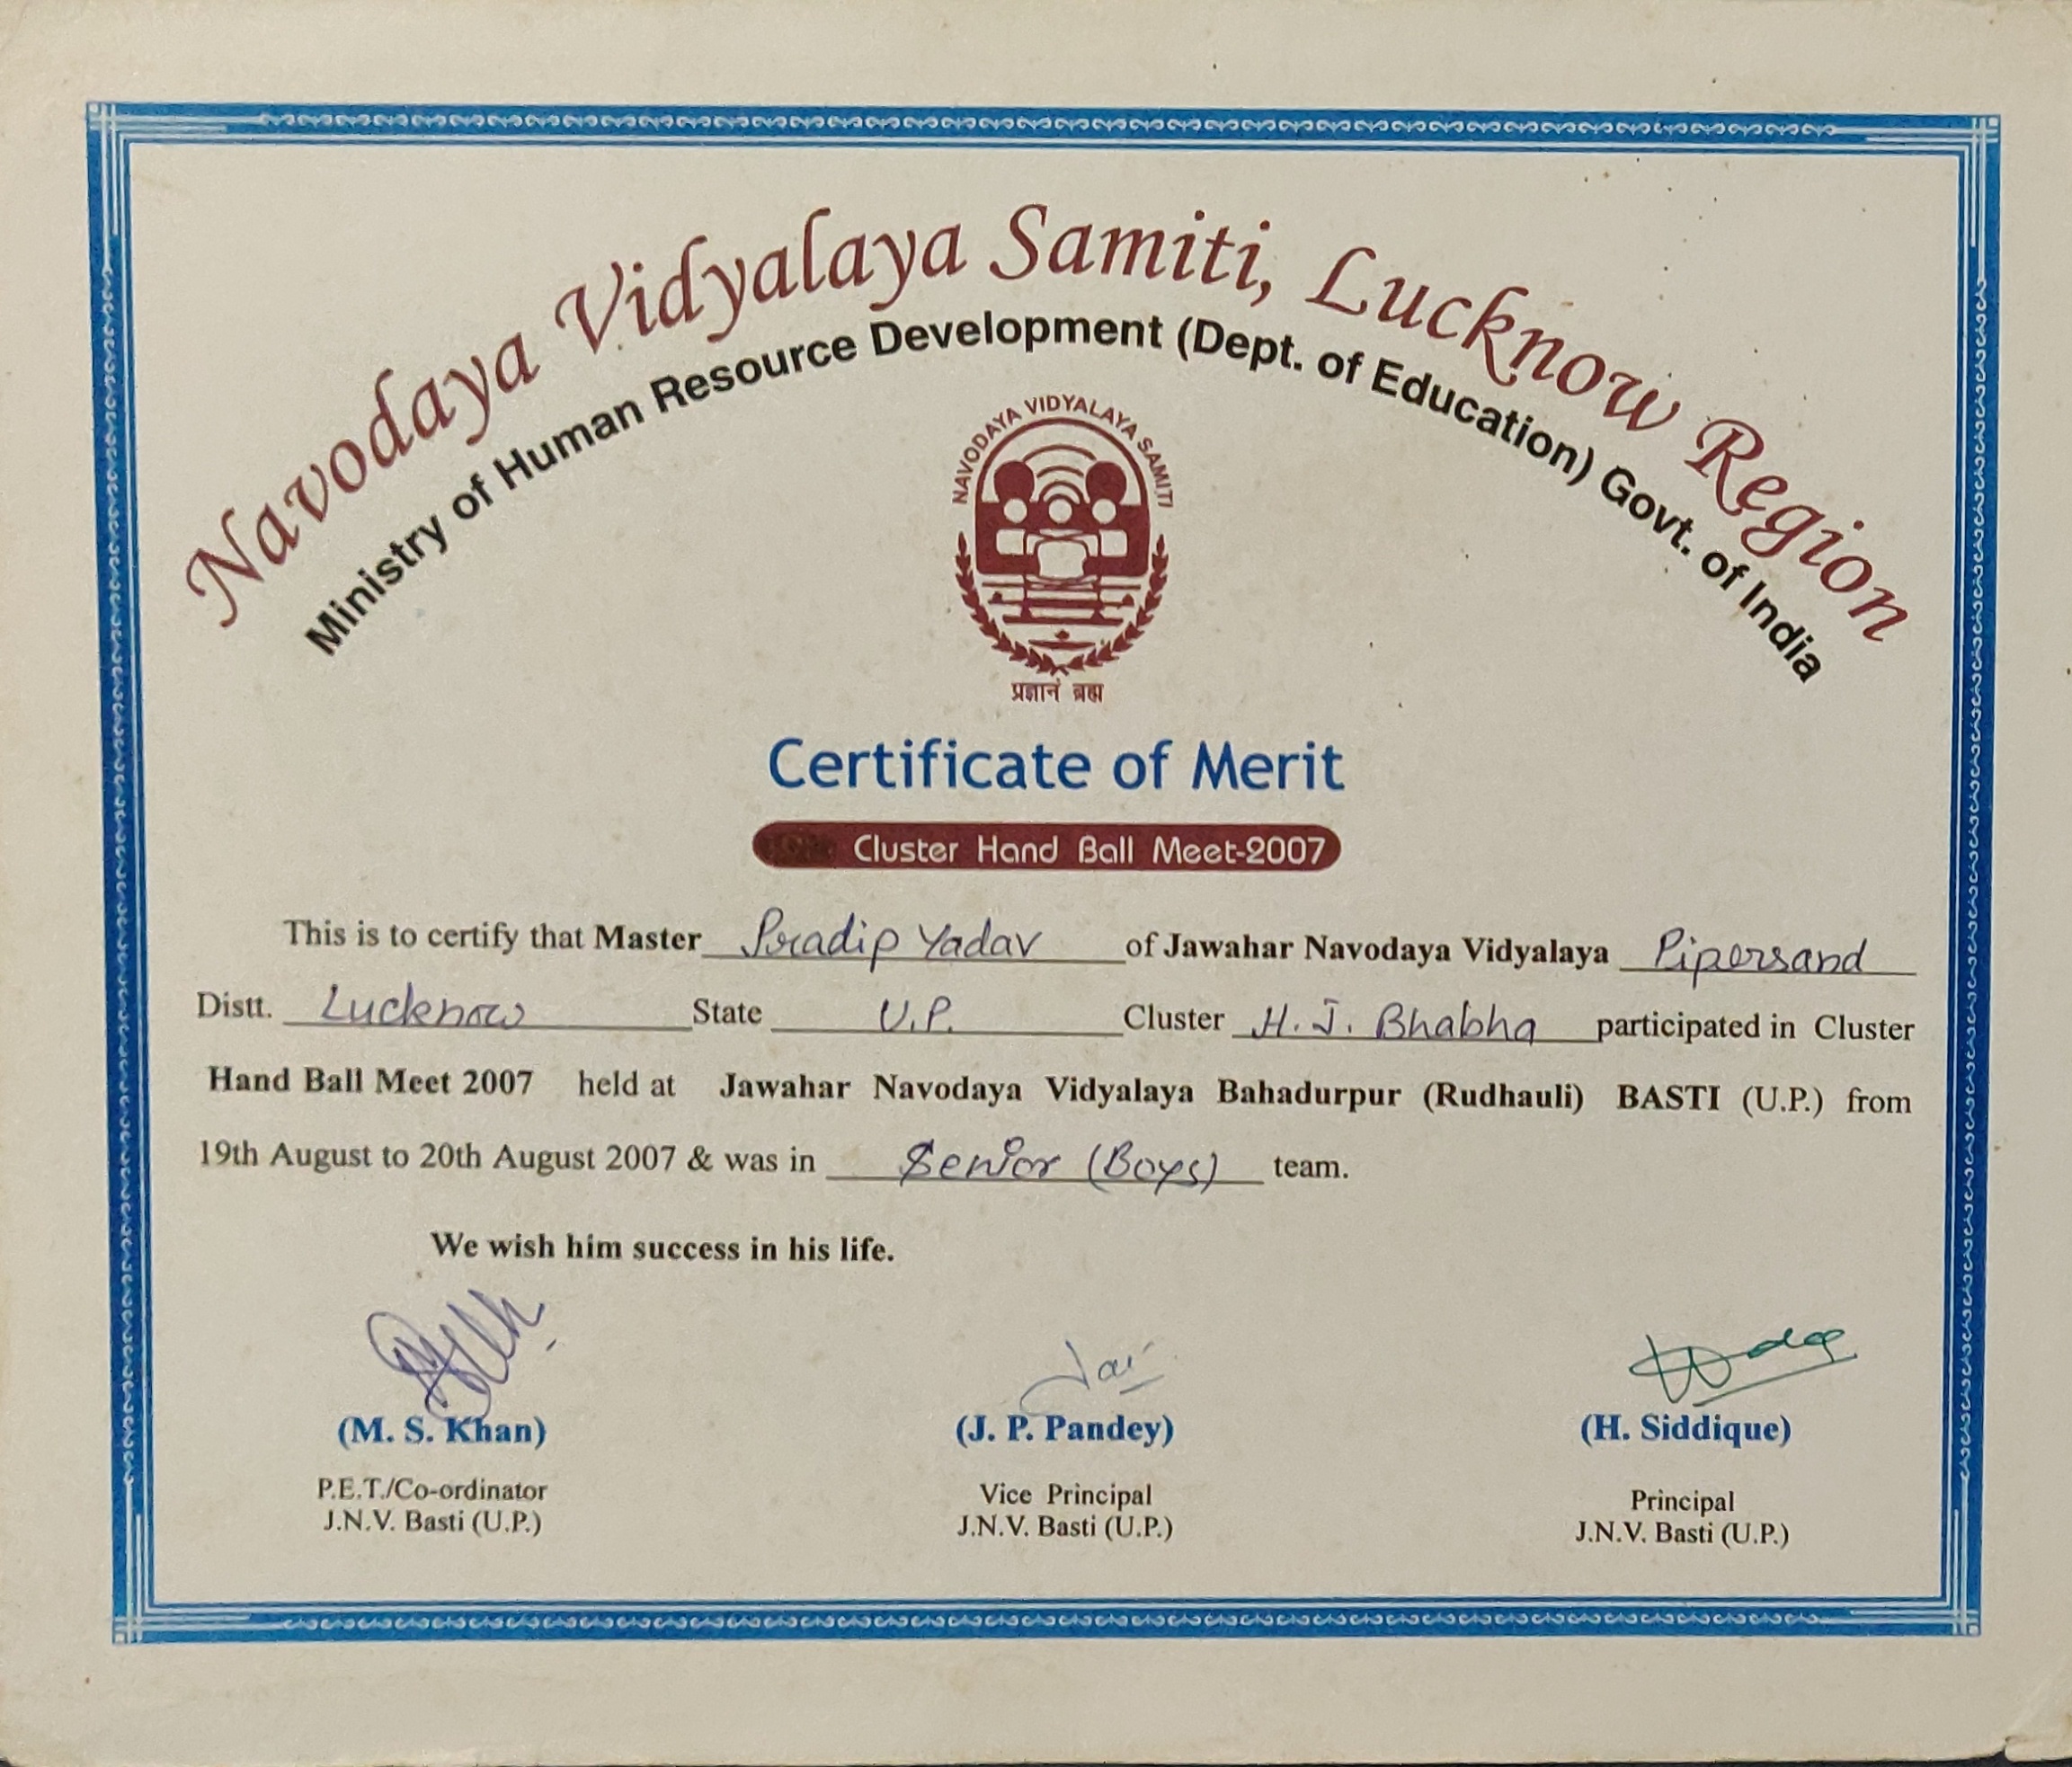 Navodaya Vidyalaya Samiti, Lucknow Region
Ministry of Human Resource Development (Dept. of Education) Govt. of India
NAVODAYA VIDYALAYA SAMITI
प्रज्ञानं ब्रह्म
Certificate of Merit
Cluster Hand Ball Meet-2007
This is to certify that Master Pradip Yadav of Jawahar Navodaya Vidyalaya Pipersand
Distt. Lucknow State U.P. Cluster H. J. Bhabha participated in Cluster
Hand Ball Meet 2007 held at Jawahar Navodaya Vidyalaya Bahadurpur (Rudhauli) BASTI (U.P.) from
19th August to 20th August 2007 & was in Senior (Boys) team.
We wish him success in his life.
(M. S. Khan) (J. P. Pandey) (H. Siddique)
P.E.T./Co-ordinator Vice Principal Principal
J.N.V. Basti (U.P.) J.N.V. Basti (U.P.) J.N.V. Basti (U.P.)